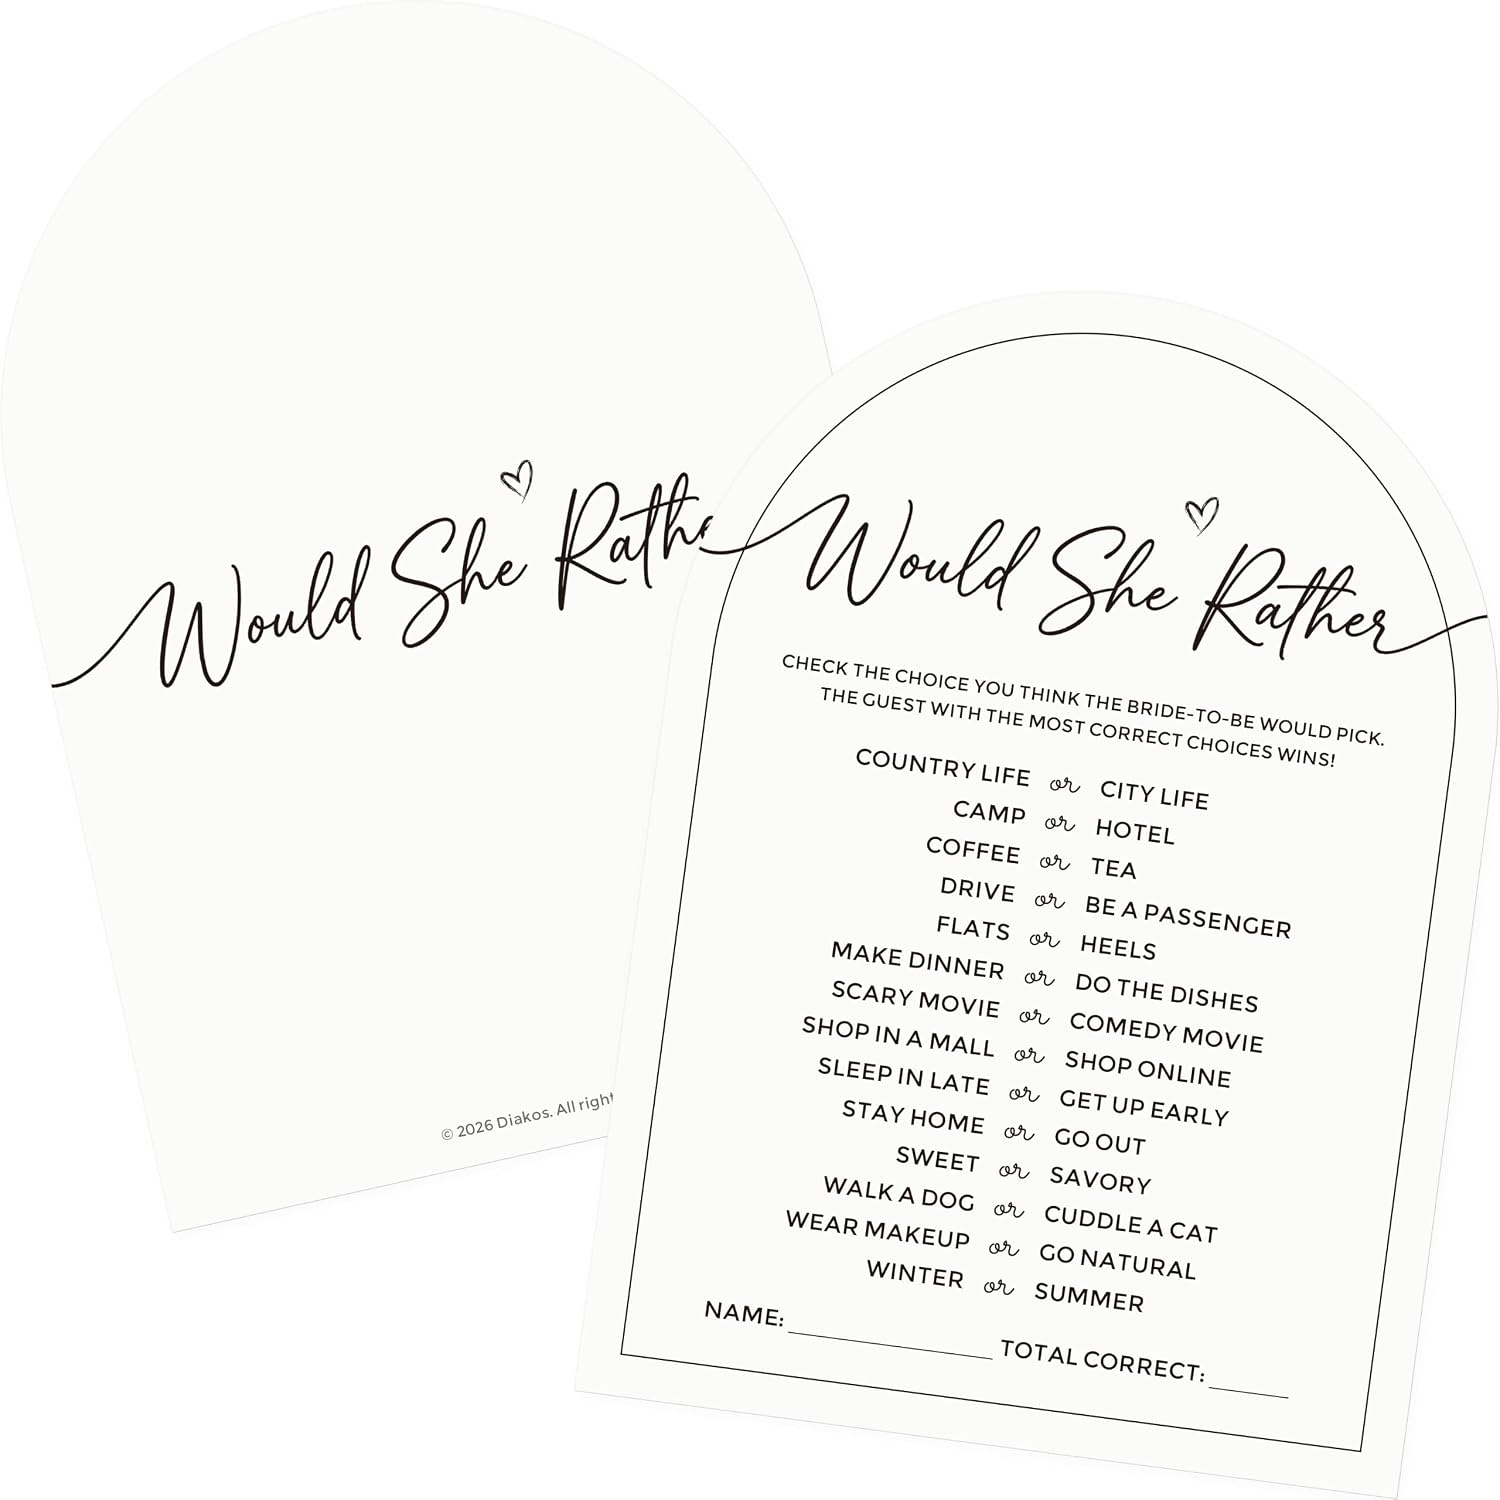 Would She Rath
© 2026 Diakos. All right
Would She Rather
CHECK THE CHOICE YOU THINK THE BRIDE-TO-BE WOULD PICK.
THE GUEST WITH THE MOST CORRECT CHOICES WINS!
COUNTRY LIFE or CITY LIFE
CAMP or HOTEL
COFFEE or TEA
DRIVE or BE A PASSENGER
FLATS or HEELS
MAKE DINNER or DO THE DISHES
SCARY MOVIE or COMEDY MOVIE
SHOP IN A MALL or SHOP ONLINE
SLEEP IN LATE or GET UP EARLY
STAY HOME or GO OUT
SWEET or SAVORY
WALK A DOG or CUDDLE A CAT
WEAR MAKEUP or GO NATURAL
WINTER or SUMMER
NAME: TOTAL CORRECT: